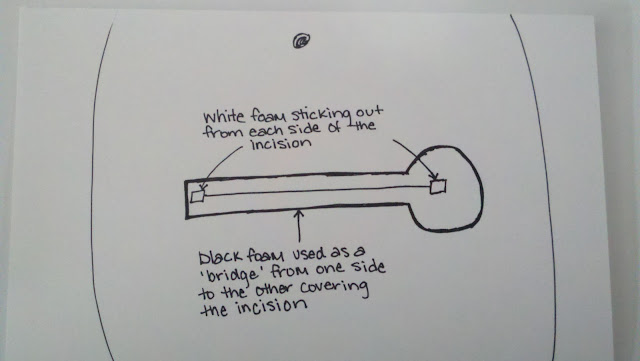 White foam sticking out
from each side of the
incision
black foam used as a
'bridge' from one side
to the other covering
the incision